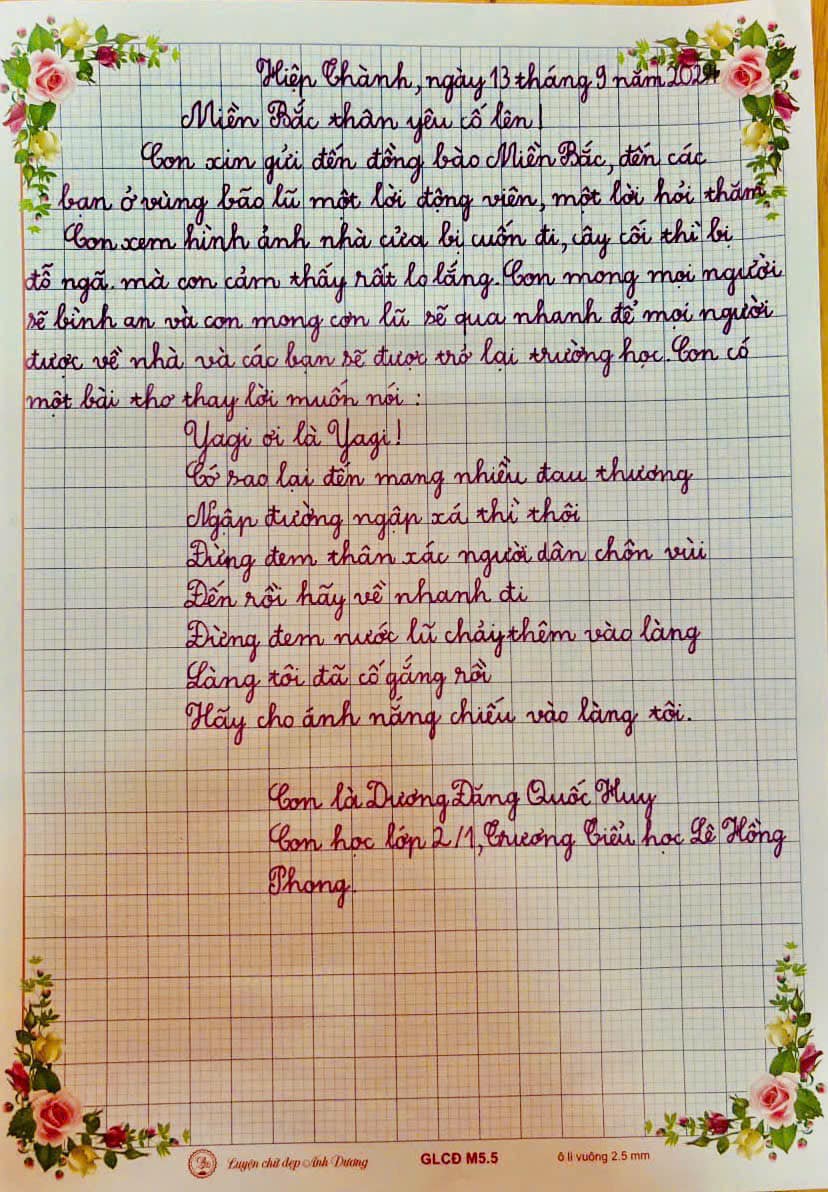 Hiệp Thành, ngày 13 tháng 9 năm 2024
Miền Bắc thân yêu cố lên!
Con xin gửi đến đồng bào Miền Bắc, đến các
bạn ở vùng bão lũ một lời động viên, một lời hỏi thăm.
Con xem hình ảnh nhà cửa bị cuốn đi, cây cối thì bị
đỗ ngã. mà con cảm thấy rất lo lắng. Con mong mọi người
sẽ bình an và con mong cơn lũ sẽ qua nhanh để mọi người
được về nhà và các bạn sẽ được trở lại trường học. Con có
một bài thơ thay lời muốn nói:
Yagi ơi là Yagi!
Cớ sao lại đến mang nhiều đau thương
Ngập đường ngập xá thì thôi
Đừng đem thân xác người dân chôn vùi
Đến rồi hãy về nhanh đi
Đừng đem nước lũ chảy thêm vào làng
Làng tôi đã cố gắng rồi
Hãy cho ánh nắng chiếu vào làng tôi.
Con là Dương Đăng Quốc Huy
Con học lớp 2/1, Trương Tiểu học Lê Hồng
Phong.
Luyện chữ đẹp Ánh Dương
GLCĐ M5.5
ô li vuông 2.5 mm